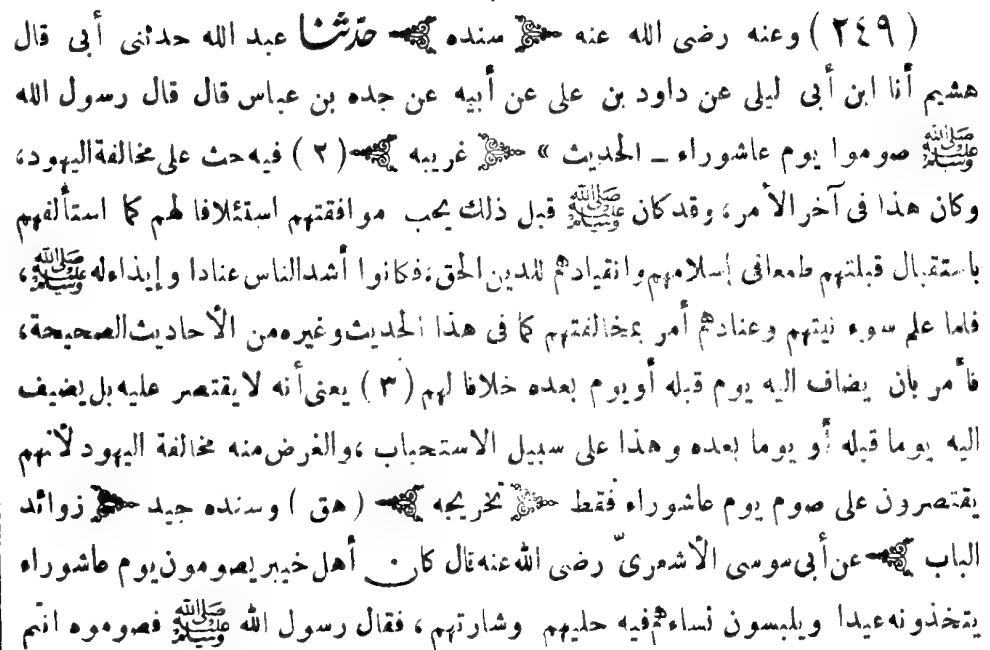 (٢٤٩) وعنه رضى الله عنه ﴿ سنده ﴾ حدّثنا عبد الله حدثنى أبى قال
هشيم أنا ابن أبى ليلى عن داود بن على عن أبيه عن جده بن عباس قال قال رسول الله
ﷺ صوموا يوم عاشوراء ـ الحديث » ﴿ غريبه ﴾ (٢) فيه حث على مخالفة اليهود،
وكان هذا فى آخر الأمر، وقد كان ﷺ قبل ذلك يحب موافقتهم استئلافا لهم كما استألفهم
باستقبال قبلتهم طمعا فى إسلامهم وانقيادهم للدين الحق، فكانوا أشد الناس عنادا وإيذاء له ﷺ،
فلما علم سوء نيتهم وعنادهم أمر بمخالفتهم كما فى هذا الحديث وغيره من الأحاديث الصحيحة،
فأمر بان يضاف اليه يوم قبله أو يوم بعده خلافا لهم (٣) يعنى أنه لا يقتصر عليه بل يضيف
اليه يوما قبله أو يوما بعده وهذا على سبيل الاستحباب، والغرض منه مخالفة اليهود لأنهم
يقتصرون على صوم يوم عاشوراء فقط ﴿ تخريجه ﴾ (هق) وسنده جيد ﴿ زوائد
الباب ﴾ عن أبى موسى الأشعرىّ رضى الله عنه قال كان أهل خيبر يصومون يوم عاشوراء
يتخذونه عيدا ويلبسون نساءهم فيه حليهم وشارتهم، فقال رسول الله ﷺ فصوموه انتم